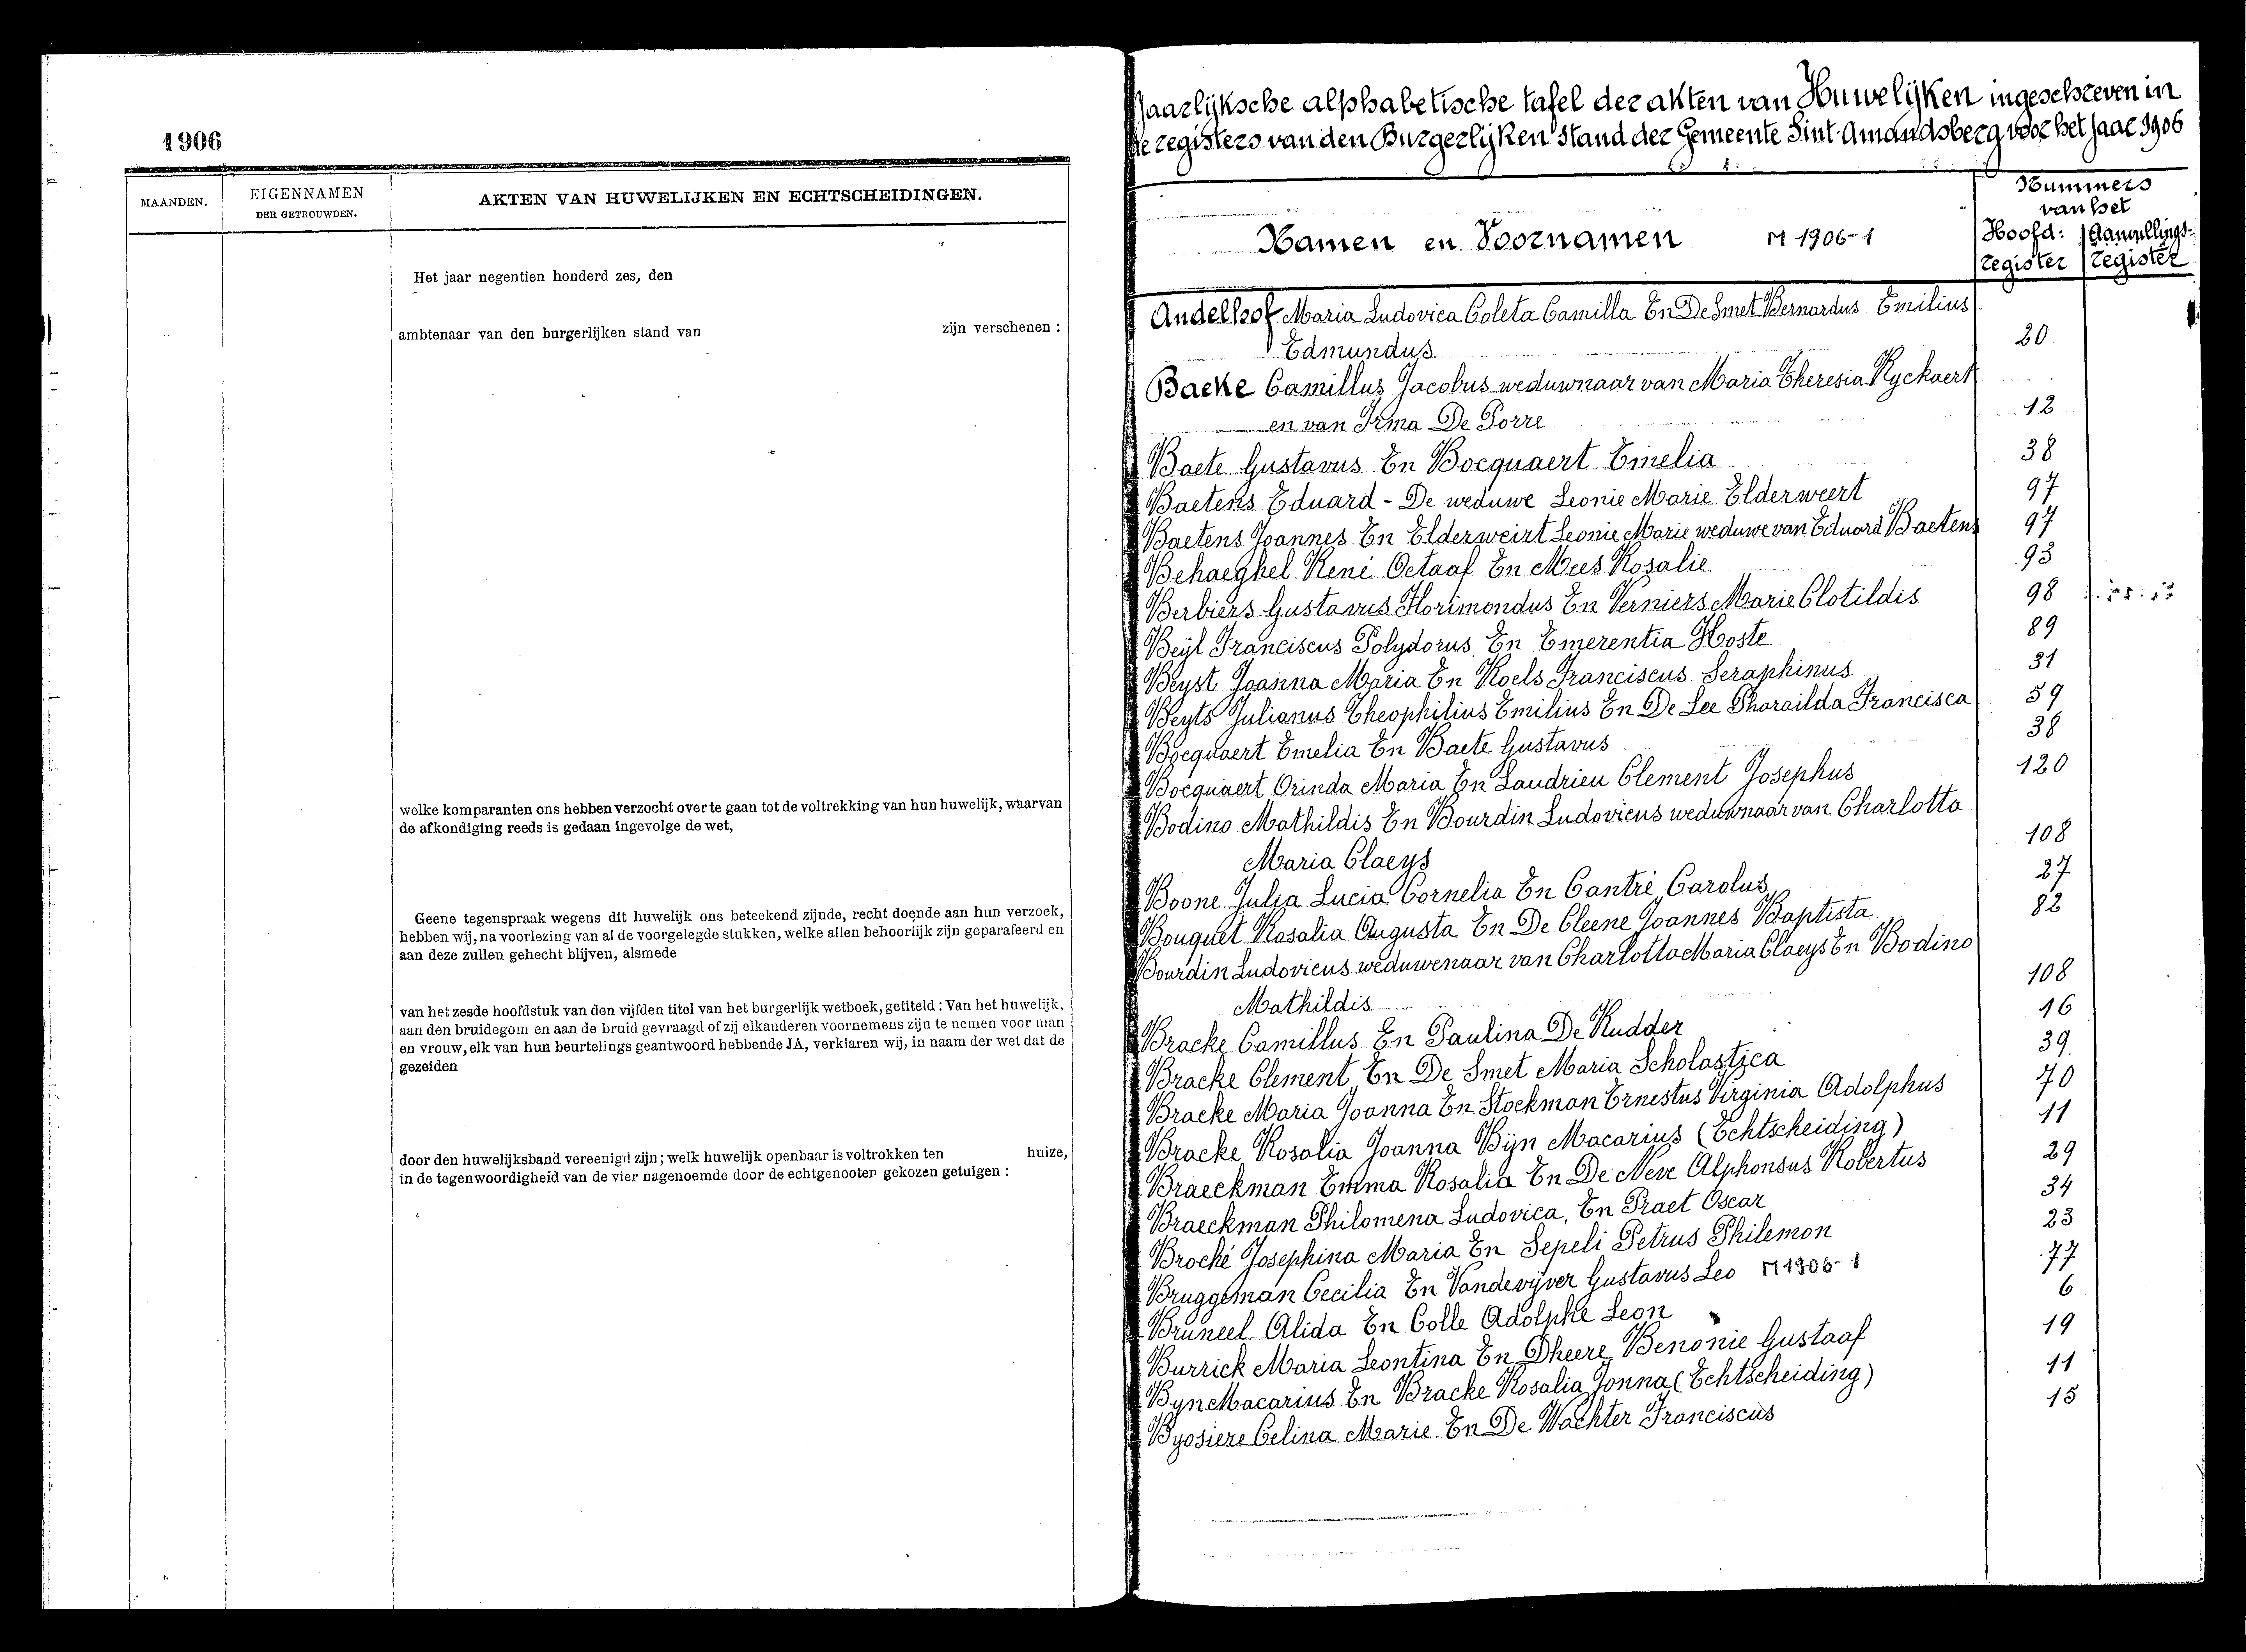 1906
MAANDEN.
EIGENNAMEN
DER GETROUWDEN.
AKTEN VAN HUWELIJKEN EN ECHTSCHEIDINGEN.
Het jaar negentien honderd zes, den
ambtenaar van den burgerlijken stand van zijn verschenen :
welke komparanten ons hebben verzocht over te gaan tot de voltrekking van hun huwelijk, waarvan
de afkondiging reeds is gedaan ingevolge de wet,
Geene tegenspraak wegens dit huwelijk ons beteekend zijnde, recht doende aan hun verzoek,
hebben wij, na voorlezing van al de voorgelegde stukken, welke allen behoorlijk zijn geparafeerd en
aan deze zullen gehecht blijven, alsmede
van het zesde hoofdstuk van den vijfden titel van het burgerlijk wetboek, getiteld : Van het huwelijk,
aan den bruidegom en aan de bruid gevraagd of zij elkanderen voornemens zijn te nemen voor man
en vrouw, elk van hun beurtelings geantwoord hebbende JA, verklaren wij, in naam der wet dat de
gezeiden
door den huwelijksband vereenigd zijn; welk huwelijk openbaar is voltrokken ten huize,
in de tegenwoordigheid van de vier nagenoemde door de echtgenooten gekozen getuigen :
Jaarlijksche alphabetische tafel der akten van Huwelijken ingeschreven in
de registers van den Burgerlijken Stand der Gemeente Sint-Amandsberg voor het jaar 1906
Namen en Voornamen M 1906-1
Nummers
van het
Hoofd: Aanvullings-
register register
Andelhof Maria Ludovica Coleta Camilla En De Smet Bernardus Emilius
Edmundus 20
Baeke Camillus Jacobus weduwnaar van Maria Theresia Ryckaert
en van Irma De Porre 12
Baete Gustavus En Bocquaert Emelia 38
Baetens Eduard - De weduwe Leonie Marie Elderweert 97
Baetens Joannes En Elderweirt Leonie Marie weduwe van Eduard Baetens 97
Behaeghel René Octaaf En Mees Rosalie 93
Berbiers Gustavus Florimondus En Verniers Marie Clotildis 98
Beijl Franciscus Polydorus En Emerentia Hoste 89
Beyst Joanna Maria En Roels Franciscus Seraphinus 31
Beyts Julianus Theophilius Emilius En De Lee Pharailda Francisca 59
Bocquaert Emelia En Baete Gustavus 38
Bocquaert Orinda Maria En Laudrieu Clement Josephus 120
Bodino Mathildis En Bourdin Ludovicus weduwnaar van Charlotta
Maria Claeys 108
Boone Julia Lucia Cornelia En Cantré Carolus 27
Bouquet Rosalia Augusta En De Cleene Joannes Baptista 82
Bourdin Ludovicus weduwenaar van Charlotta Maria Claeys En Bodino
Mathildis 108
Bracke Camillus En Paulina De Rudder 16
Bracke Clement En De Smet Maria Scholastica 39
Bracke Maria Joanna En Stockman Ernestus Virginia Adolphus 70
Bracke Rosalia Joanna Bijn Macarius (Echtscheiding) 11
Braeckman Emma Rosalia En De Neve Alphonsus Robertus 29
Braeckman Philomena Ludovica, En Praet Oscar 34
Brocké Josephina Maria En Sepeli Petrus Philemon 23
Bruggeman Cecilia En Vandevyver Gustavus Leo M 1906-1 77
Bruneel Alida En Colle Adolphe Leon 6
Burrick Maria Leontina En Dheere Benonie Gustaaf 19
Byn Macarius En Bracke Rosalia Jonna (Echtscheiding) 11
Byosiere Celina Marie En De Wachter Franciscus 15